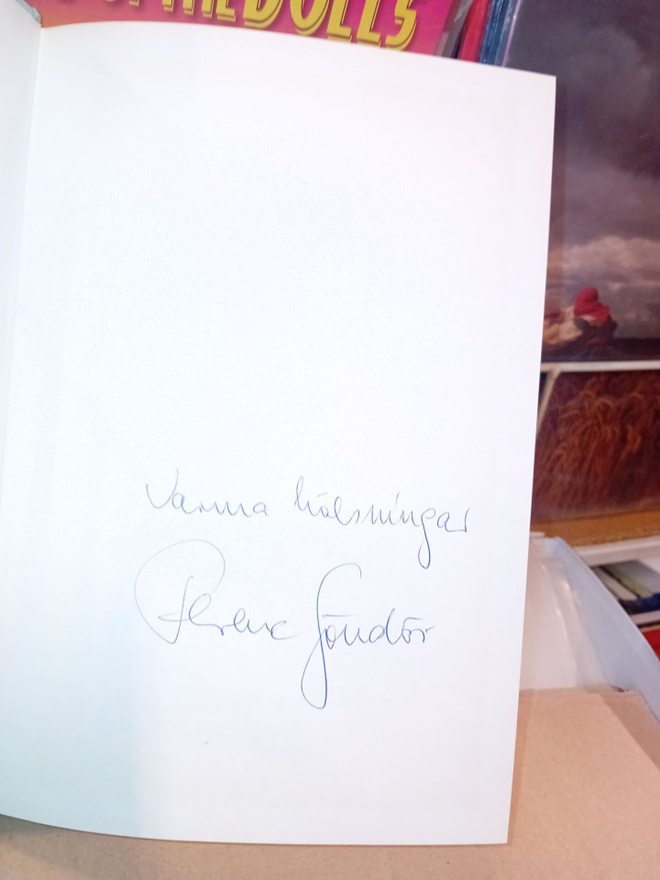 OF THE DOLLS
Varma hälsningar
Ferenc Göndör